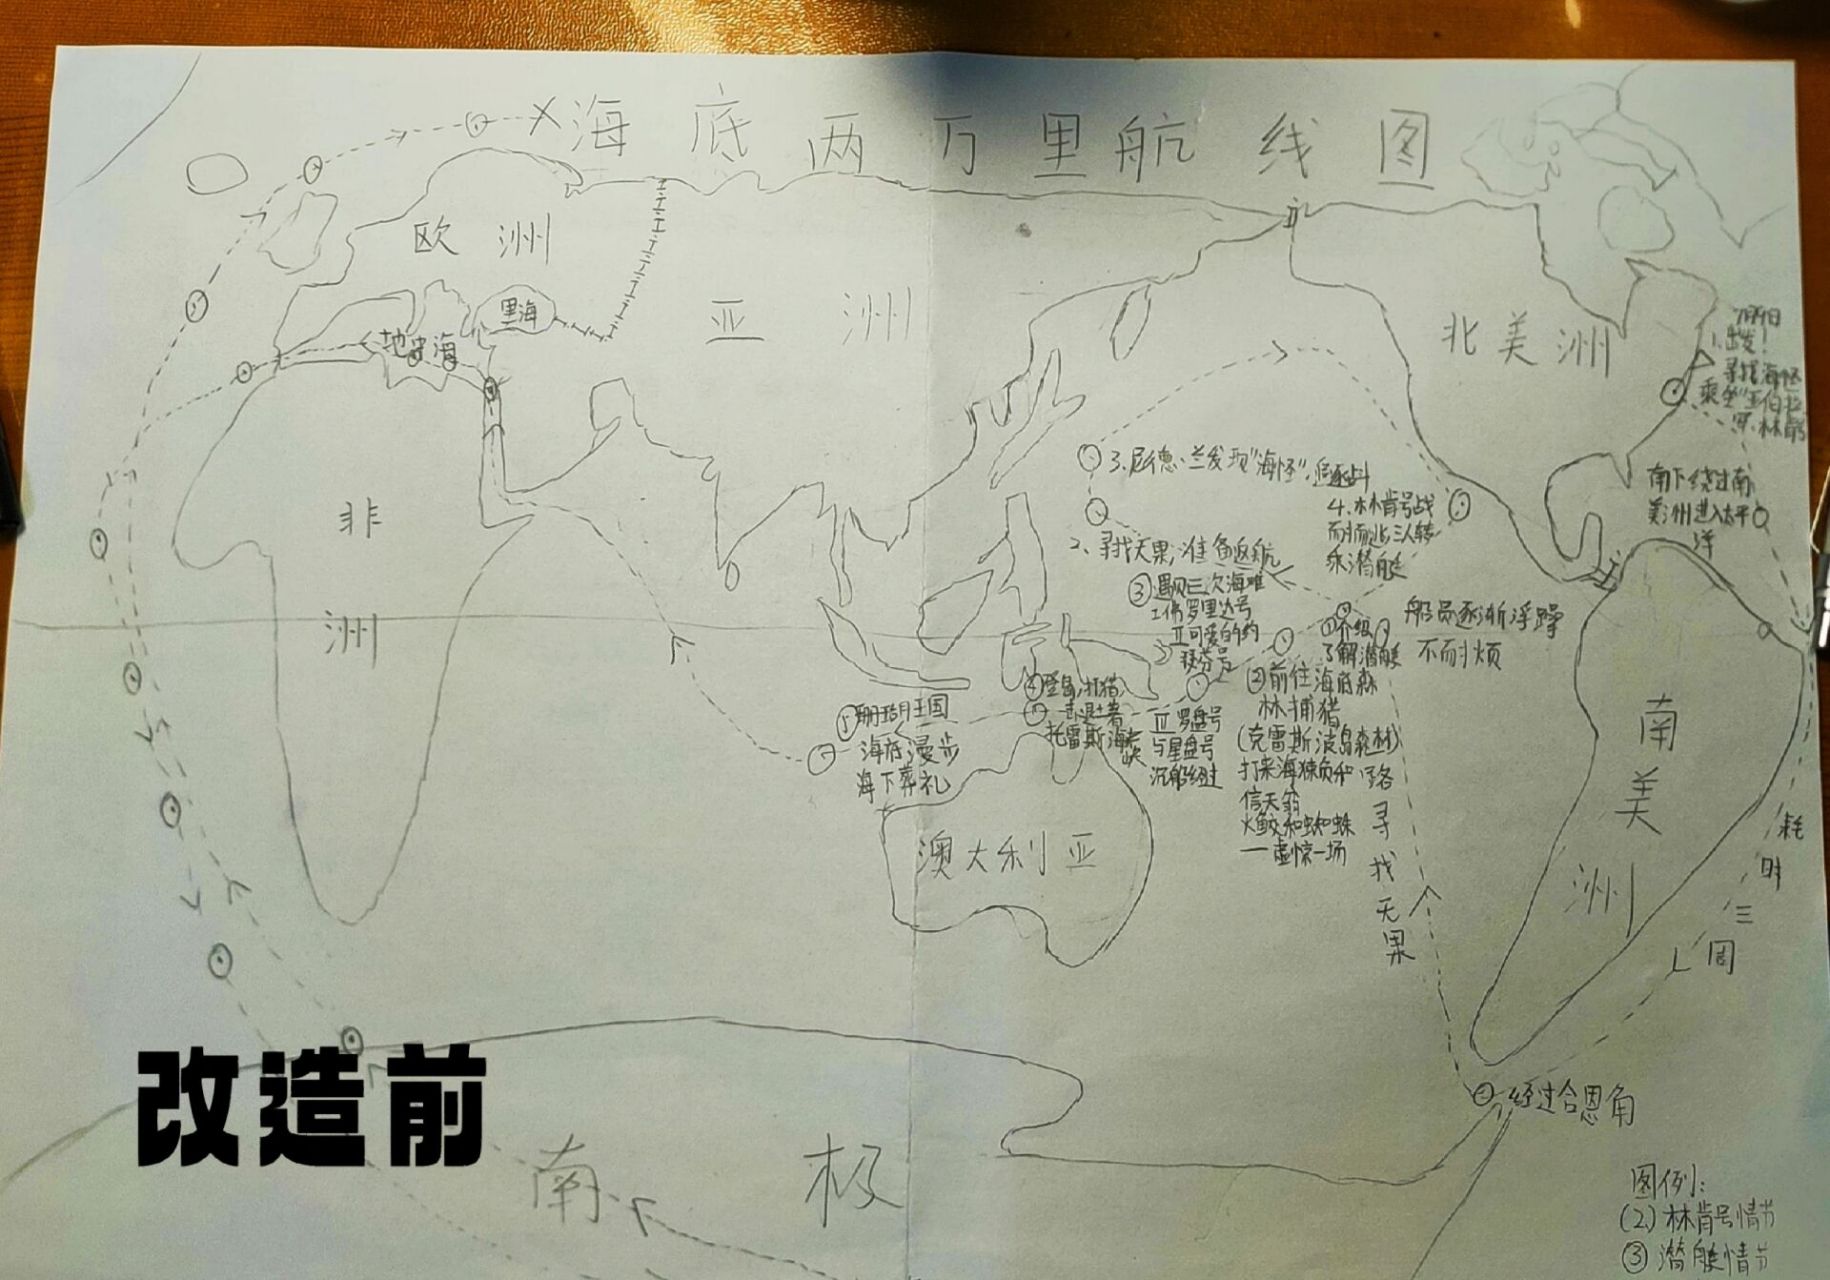 海底两万里航线图
欧洲
亚洲
里海
地中海
北美洲
7月9日
1.出发!
寻找海怪
乘坐"亚伯拉
罕·林肯号
南下绕过南
美洲进入太平
洋
3.尼德·兰发现"海怪",追逐战
4.林肯号战
而
三人转
乘潜艇
2、寻找无果,准备返航
③遇见三次海难
I.佛罗里达号
II可爱的约
瑟芬号
船员逐渐浮躁
不耐烦
①介绍
了解潜艇
②前往海底森
林捕猎
(克雷斯波岛森林)
打来海獭负和
信天翁
火鲛和蜘蛛
一虚惊一场
III罗盘号
与星盘号
沉船经过
④登岛,打猎,
击退土著
托雷斯海峡
⑤珊瑚王国
海底漫步
海下葬礼
非洲
澳大利亚
南美洲
一路寻找无果
耗时三周
经过合恩角
南极
改造前
图例:
(2)林肯号情节
③潜艇情节